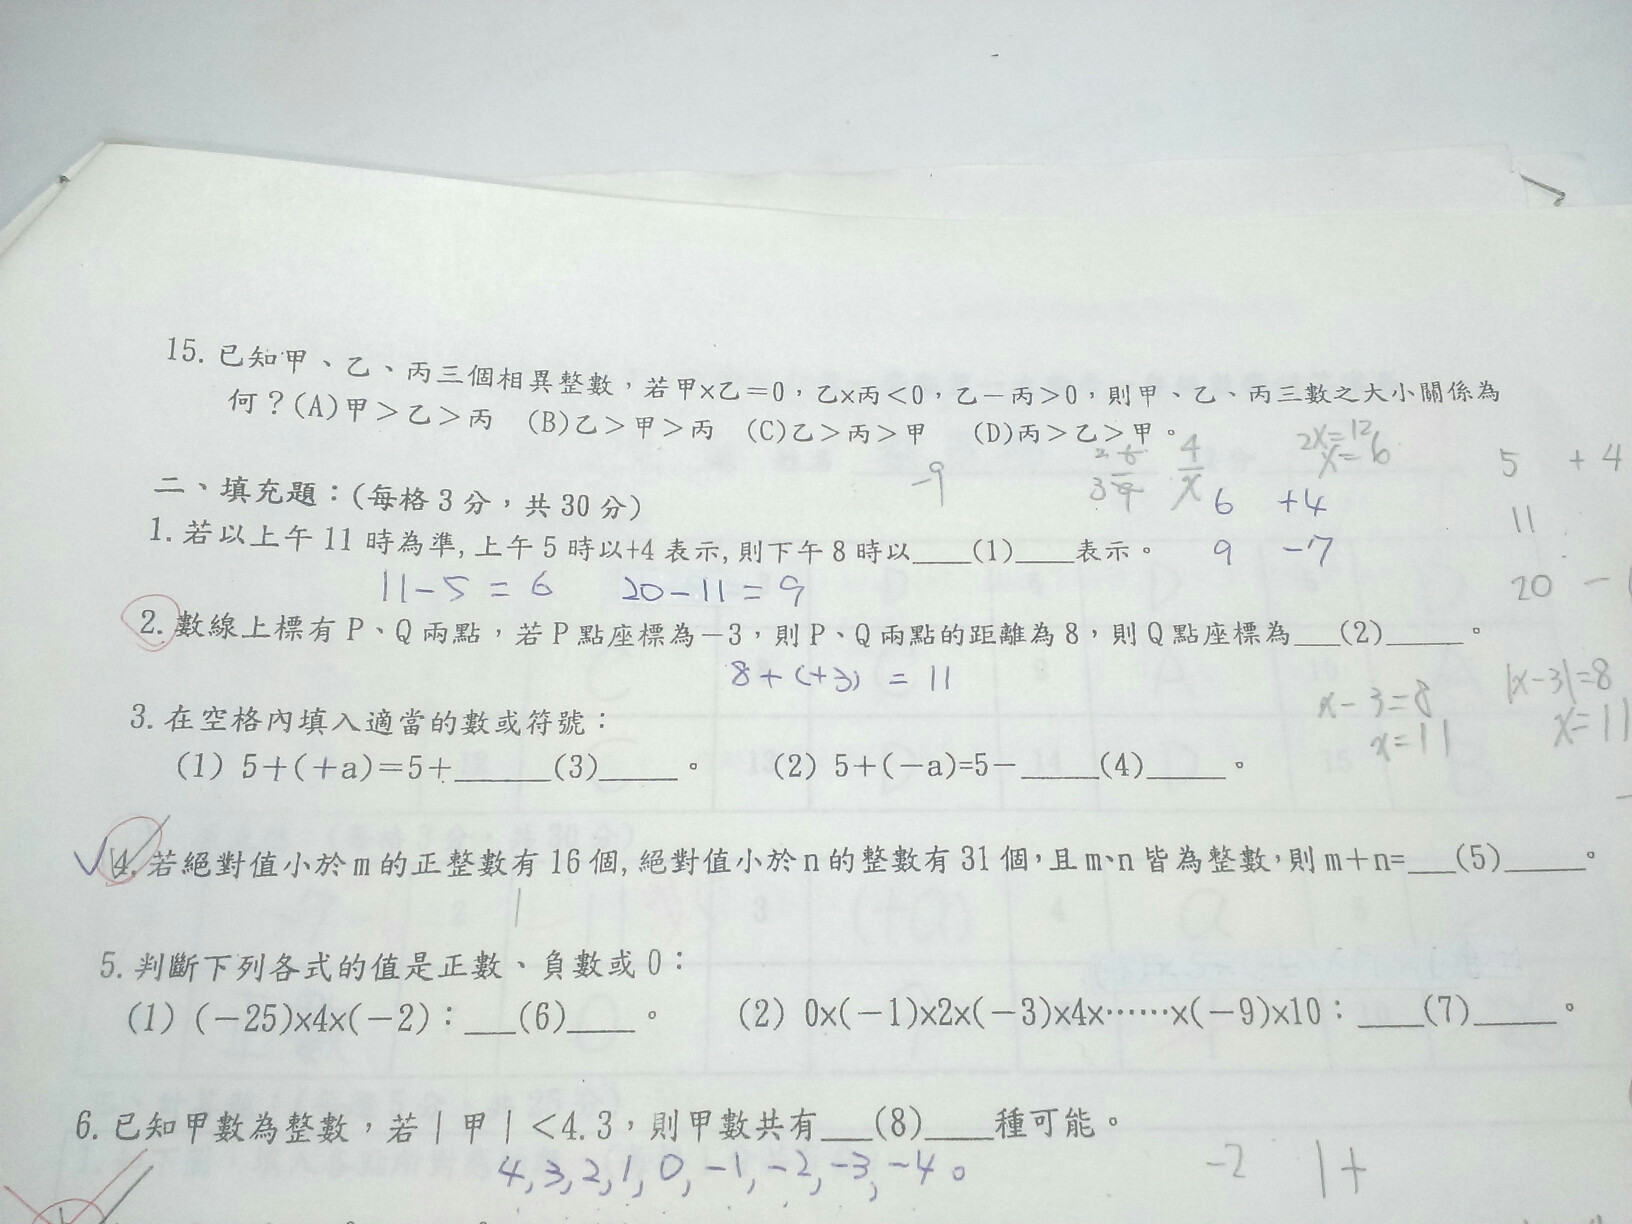 15. 已知甲、乙、丙三個相異整數，若甲×乙＝0，乙×丙＜0，乙－丙＞0，則甲、乙、丙三數之大小關係為
何？(A)甲＞乙＞丙 (B)乙＞甲＞丙 (C)乙＞丙＞甲 (D)丙＞乙＞甲。
2x=12
x=6
4
x
-9
5 +4
二、填充題：(每格3分，共30分)
6 +4
11
1. 若以上午11時為準,上午5時以+4表示,則下午8時以____(1)____表示。
9 -7
11-5=6 20-11=9
20 -
2. 數線上標有P、Q兩點，若P點座標為－3，則P、Q兩點的距離為8，則Q點座標為___(2)_____。
8+(+3)=11
x-3=8
x=11
|x-3|=8
x=11
3. 在空格內填入適當的數或符號：
(1) 5＋(＋a)＝5＋______(3)_____。 (2) 5＋(－a)=5－_____(4)_____。
4. 若絕對值小於m的正整數有16個,絕對值小於n的整數有31個，且m、n皆為整數，則m＋n=___(5)_____。
5. 判斷下列各式的值是正數、負數或0：
(1) (－25)×4×(－2)：___(6)____。 (2) 0×(－1)×2×(－3)×4×……×(－9)×10：____(7)_____。
6. 已知甲數為整數，若｜甲｜＜4.3，則甲數共有___(8)____種可能。
4,3,2,1,0,-1,-2,-3,-4。
-2 1+